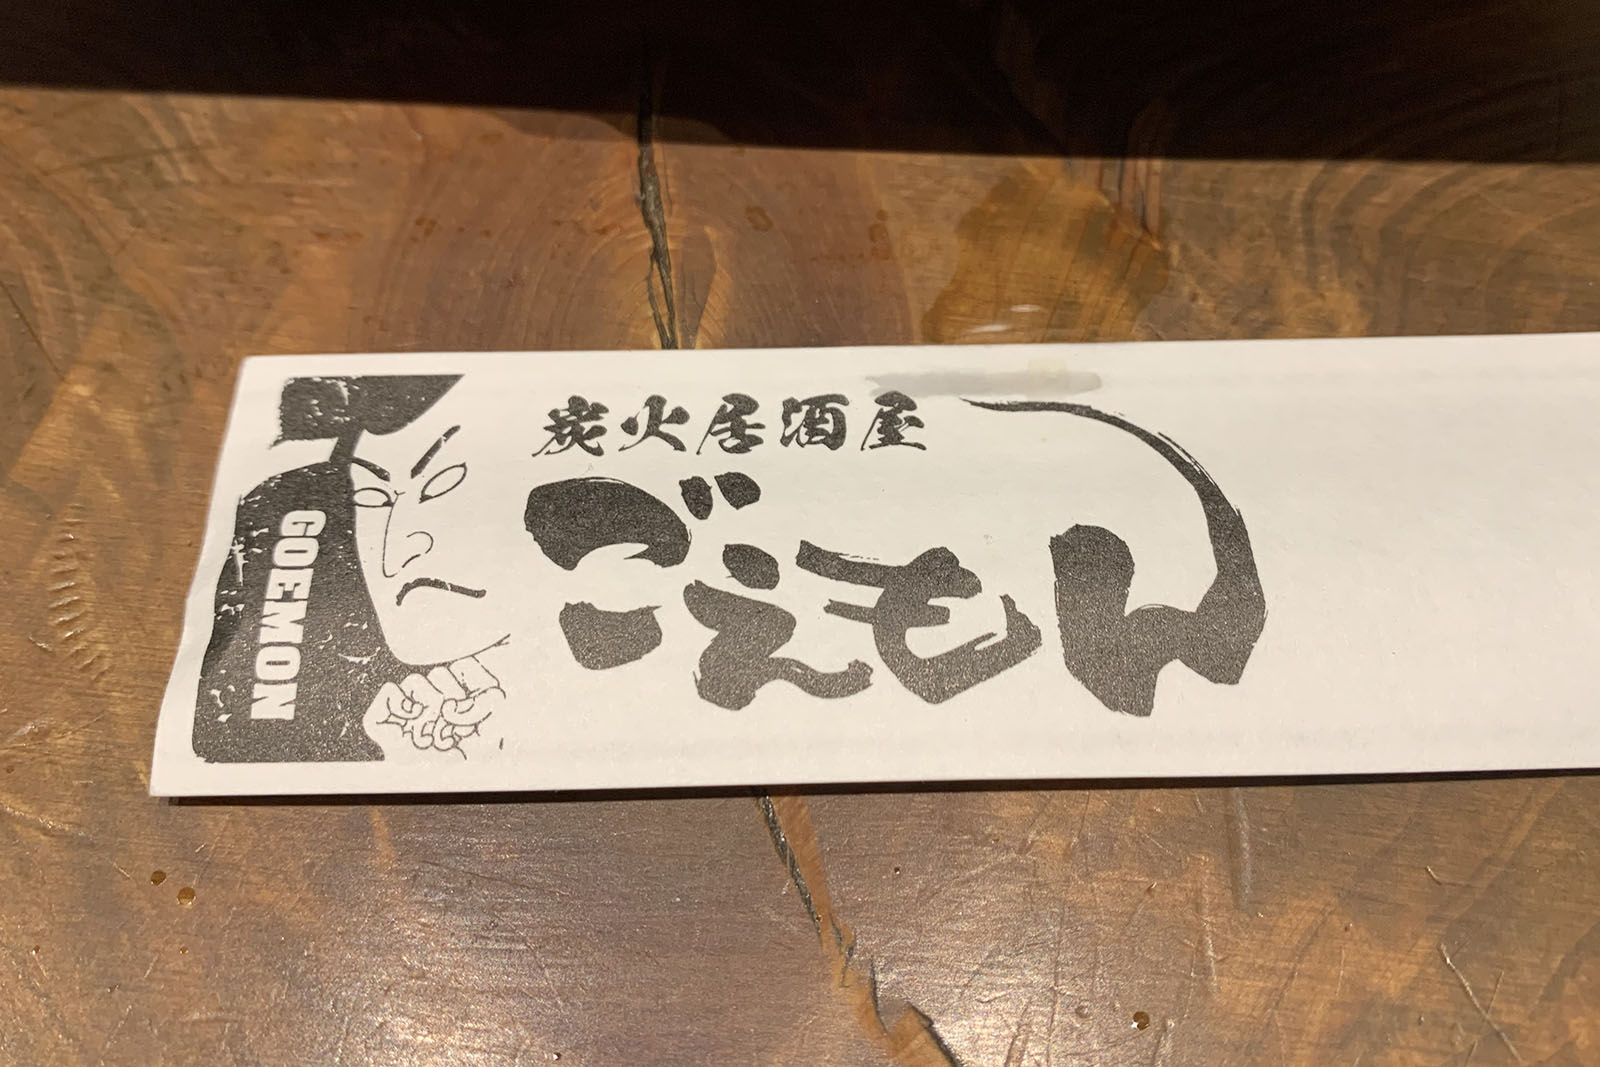 炭火居酒屋
ごえもん
GOEMON